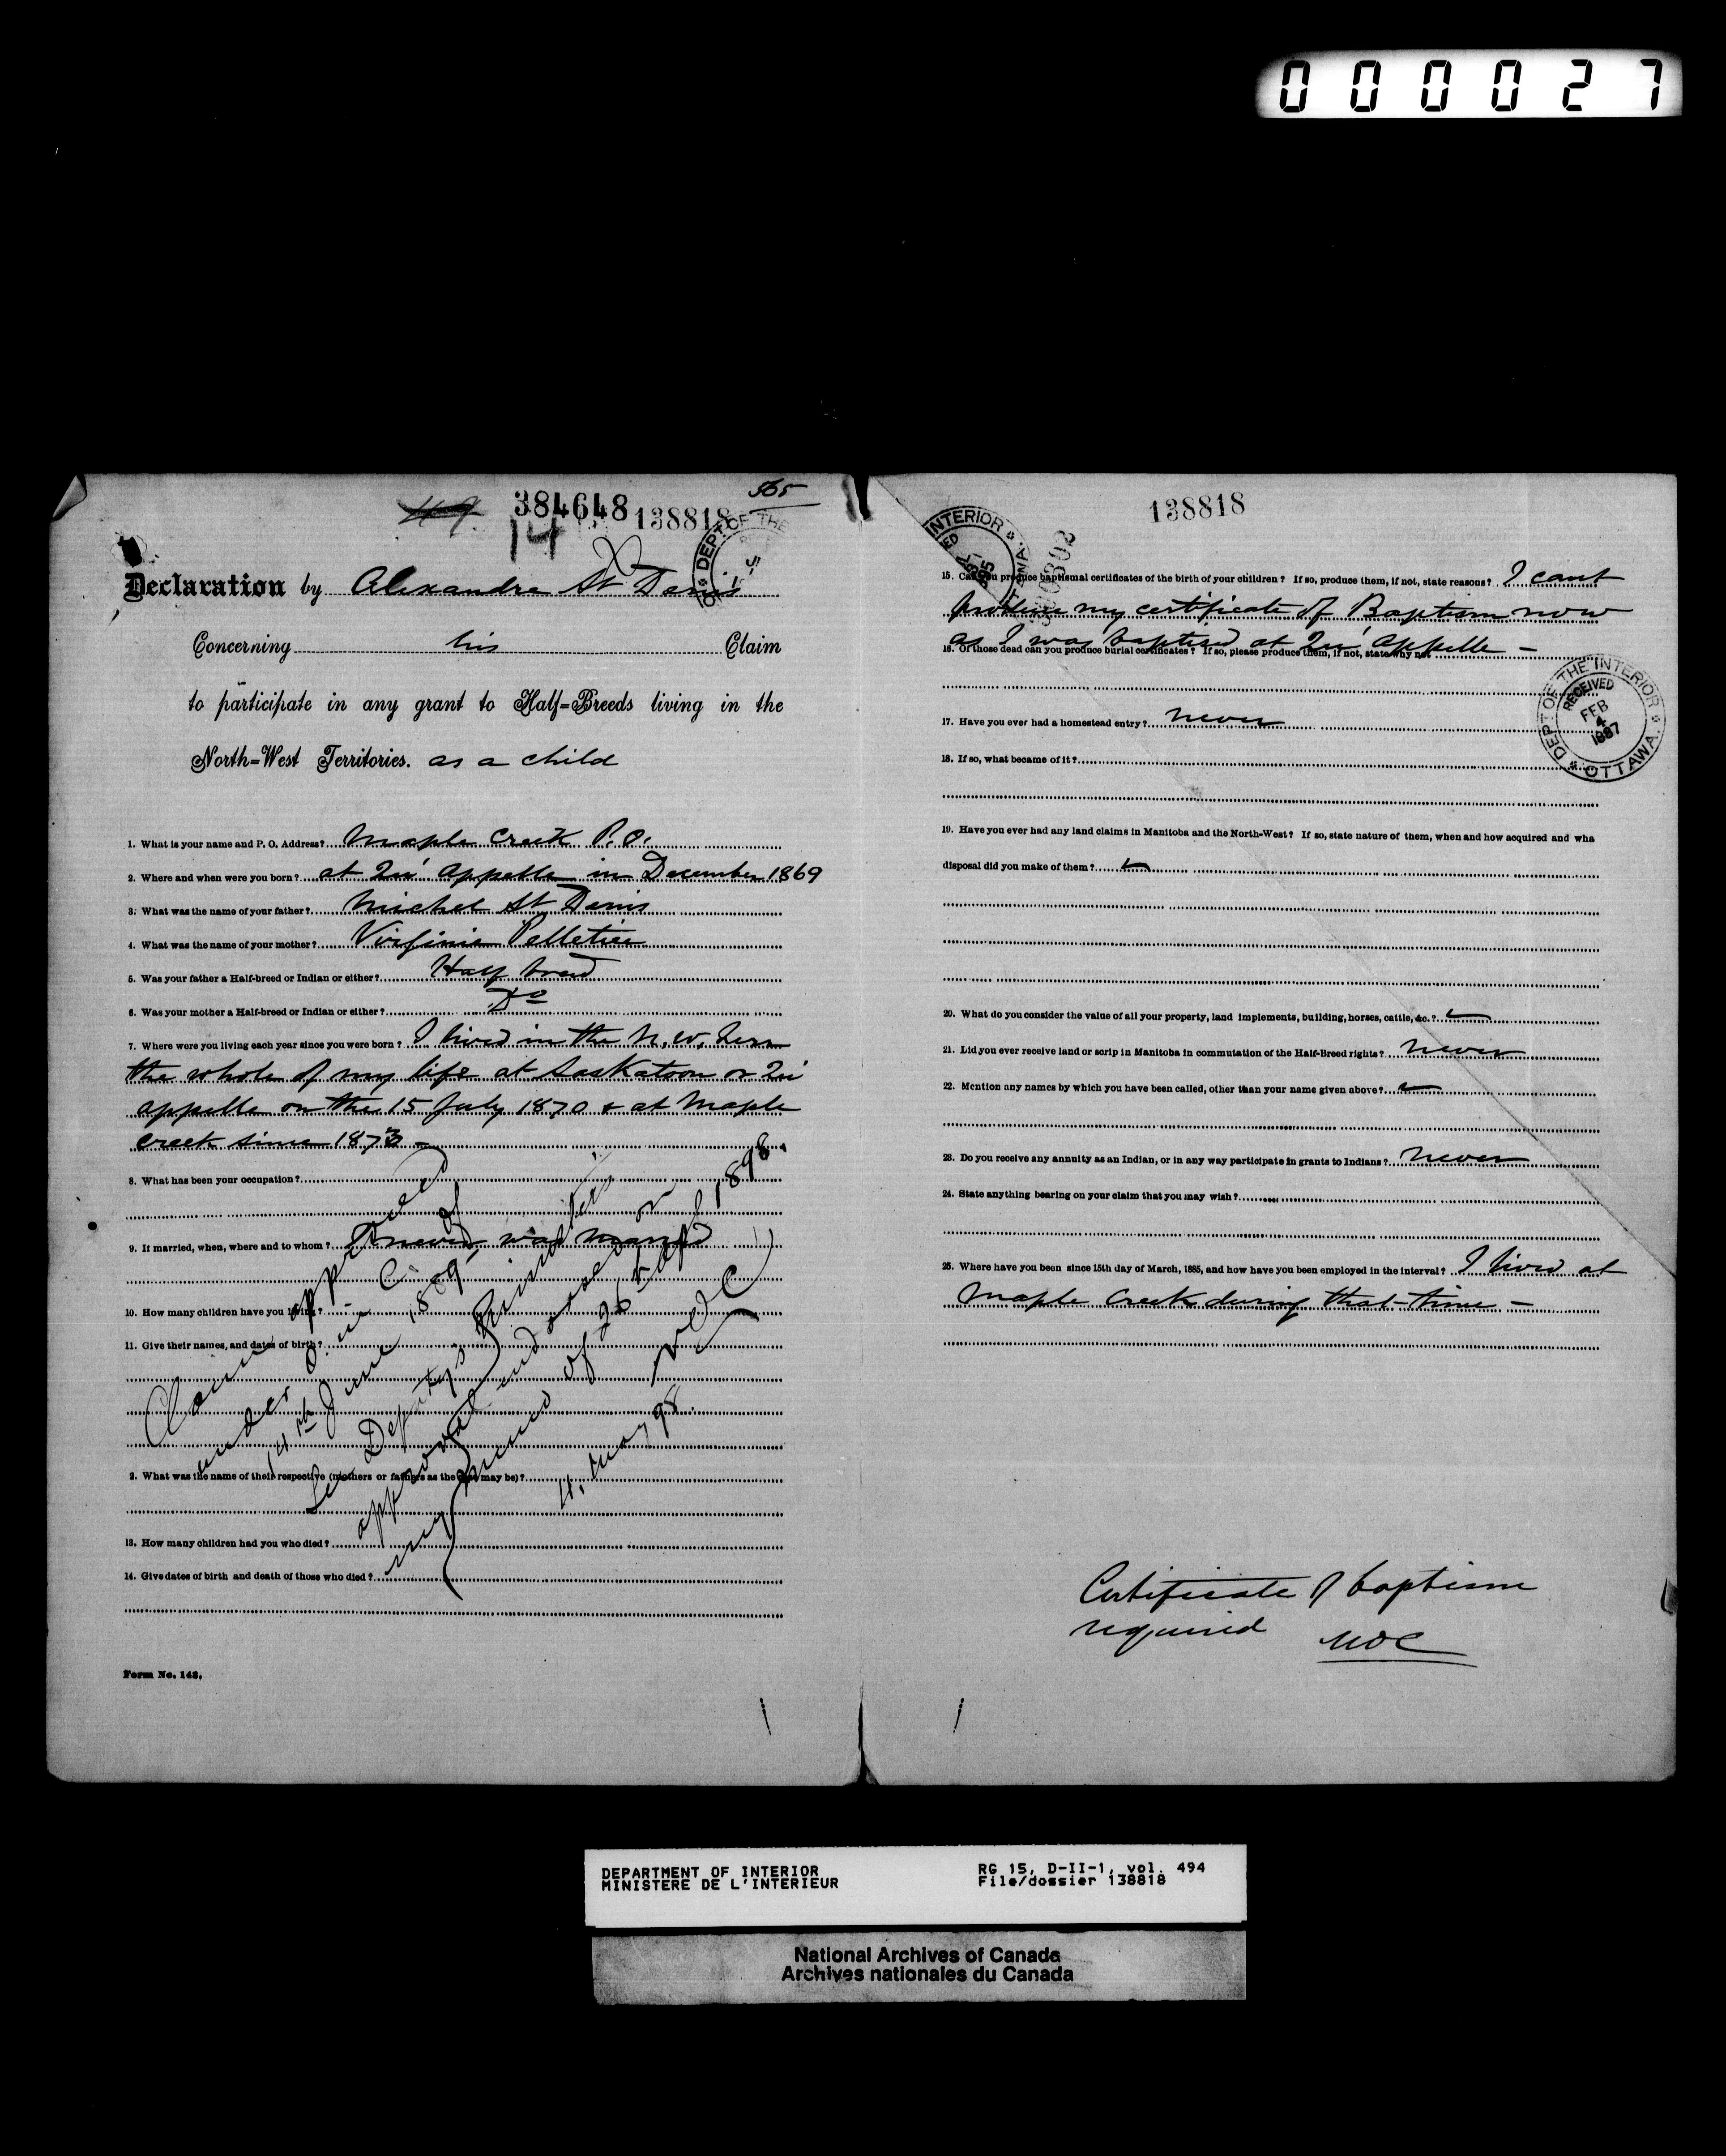 000027
565
49 384648 138818
14
DEPT OF THE
Declaration by Alexandre St Denis
Concerning his Claim
to participate in any grant to Half=Breeds living in the
North=West Territories. as a child
1. What is your name and P. O. Address? Maple Creek P.O.
2. Where and when were you born? at Qu'appelle in December 1869
3. What was the name of your father? Michel St Denis
4. What was the name of your mother? Virginie Pelletier
5. Was your father a Half-breed or Indian or either? Half breed
6. Was your mother a Half-breed or Indian or either? Do
7. Where were you living each year since you were born? I lived in the N.W. Terr
the whole of my life at Saskatoon or Qu'
appelle on the 15 July 1870 & at Maple
Creek since 1873 –
8. What has been your occupation?
9. If married, when, where and to whom? I never was married
10. How many children have you living?
11. Give their names, and dates of birth?
2. What was the name of their respective (mothers or fathers as the case may be)?
13. How many children had you who died?
14. Give dates of birth and death of those who died?
Claim approved
under O. in C. of
14th June 1889,
See Deputy's Minister's
approval endorsed on
my memo of 26th Apl 1898.
NOC
11. May 98.
Form No. 143.
138818
INTERIOR
15. Can you produce baptismal certificates of the birth of your children? If so, produce them, if not, state reasons? I cant
produce my certificate of Baptism now
as I was baptised at Qu'appelle –
16. Of those dead can you produce burial certificates? If so, please produce them, if not, state why not
DEPT OF THE INTERIOR
RECEIVED
FEB
4
1887
OTTAWA.
17. Have you ever had a homestead entry? never
18. If so, what became of it?
19. Have you ever had any land claims in Manitoba and the North-West? If so, state nature of them, when and how acquired and wha
disposal did you make of them?
20. What do you consider the value of all your property, land implements, building, horses, cattle, &c.?
21. Did you ever receive land or scrip in Manitoba in commutation of the Half-Breed rights? never
22. Mention any names by which you have been called, other than your name given above?
23. Do you receive any annuity as an Indian, or in any way participate in grants to Indians? never
24. State anything bearing on your claim that you may wish?
25. Where have you been since 15th day of March, 1885, and how have you been employed in the interval? I lived at
Maple Creek during that time –
Certificate of baptism
required NOC
DEPARTMENT OF INTERIOR RG 15, D-II-1, vol. 494
MINISTERE DE L'INTERIEUR File/dossier 138818
National Archives of Canada
Archives nationales du Canada